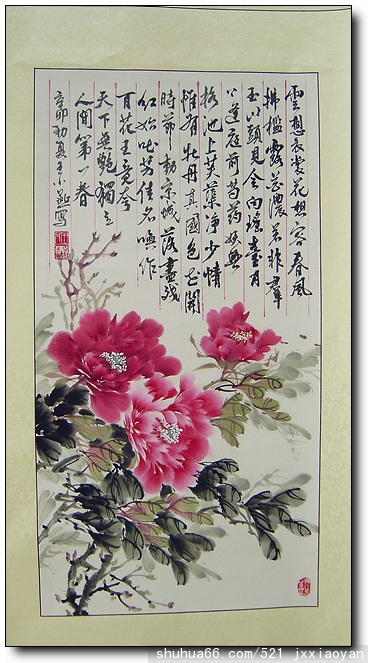 雲想衣裳花想容春風
拂檻露華濃若非群
玉山頭見會向瑤臺月
下逢庭前芍藥妖無
格池上芙蕖淨少情
惟有牡丹真國色花開
時節動京城落盡殘
紅始吐芳佳名喚作
百花王竞夸
天下無艷獨立
人間第一春
辛卯初夏王小寫
shuhua66.com/521 jxxiaoyan